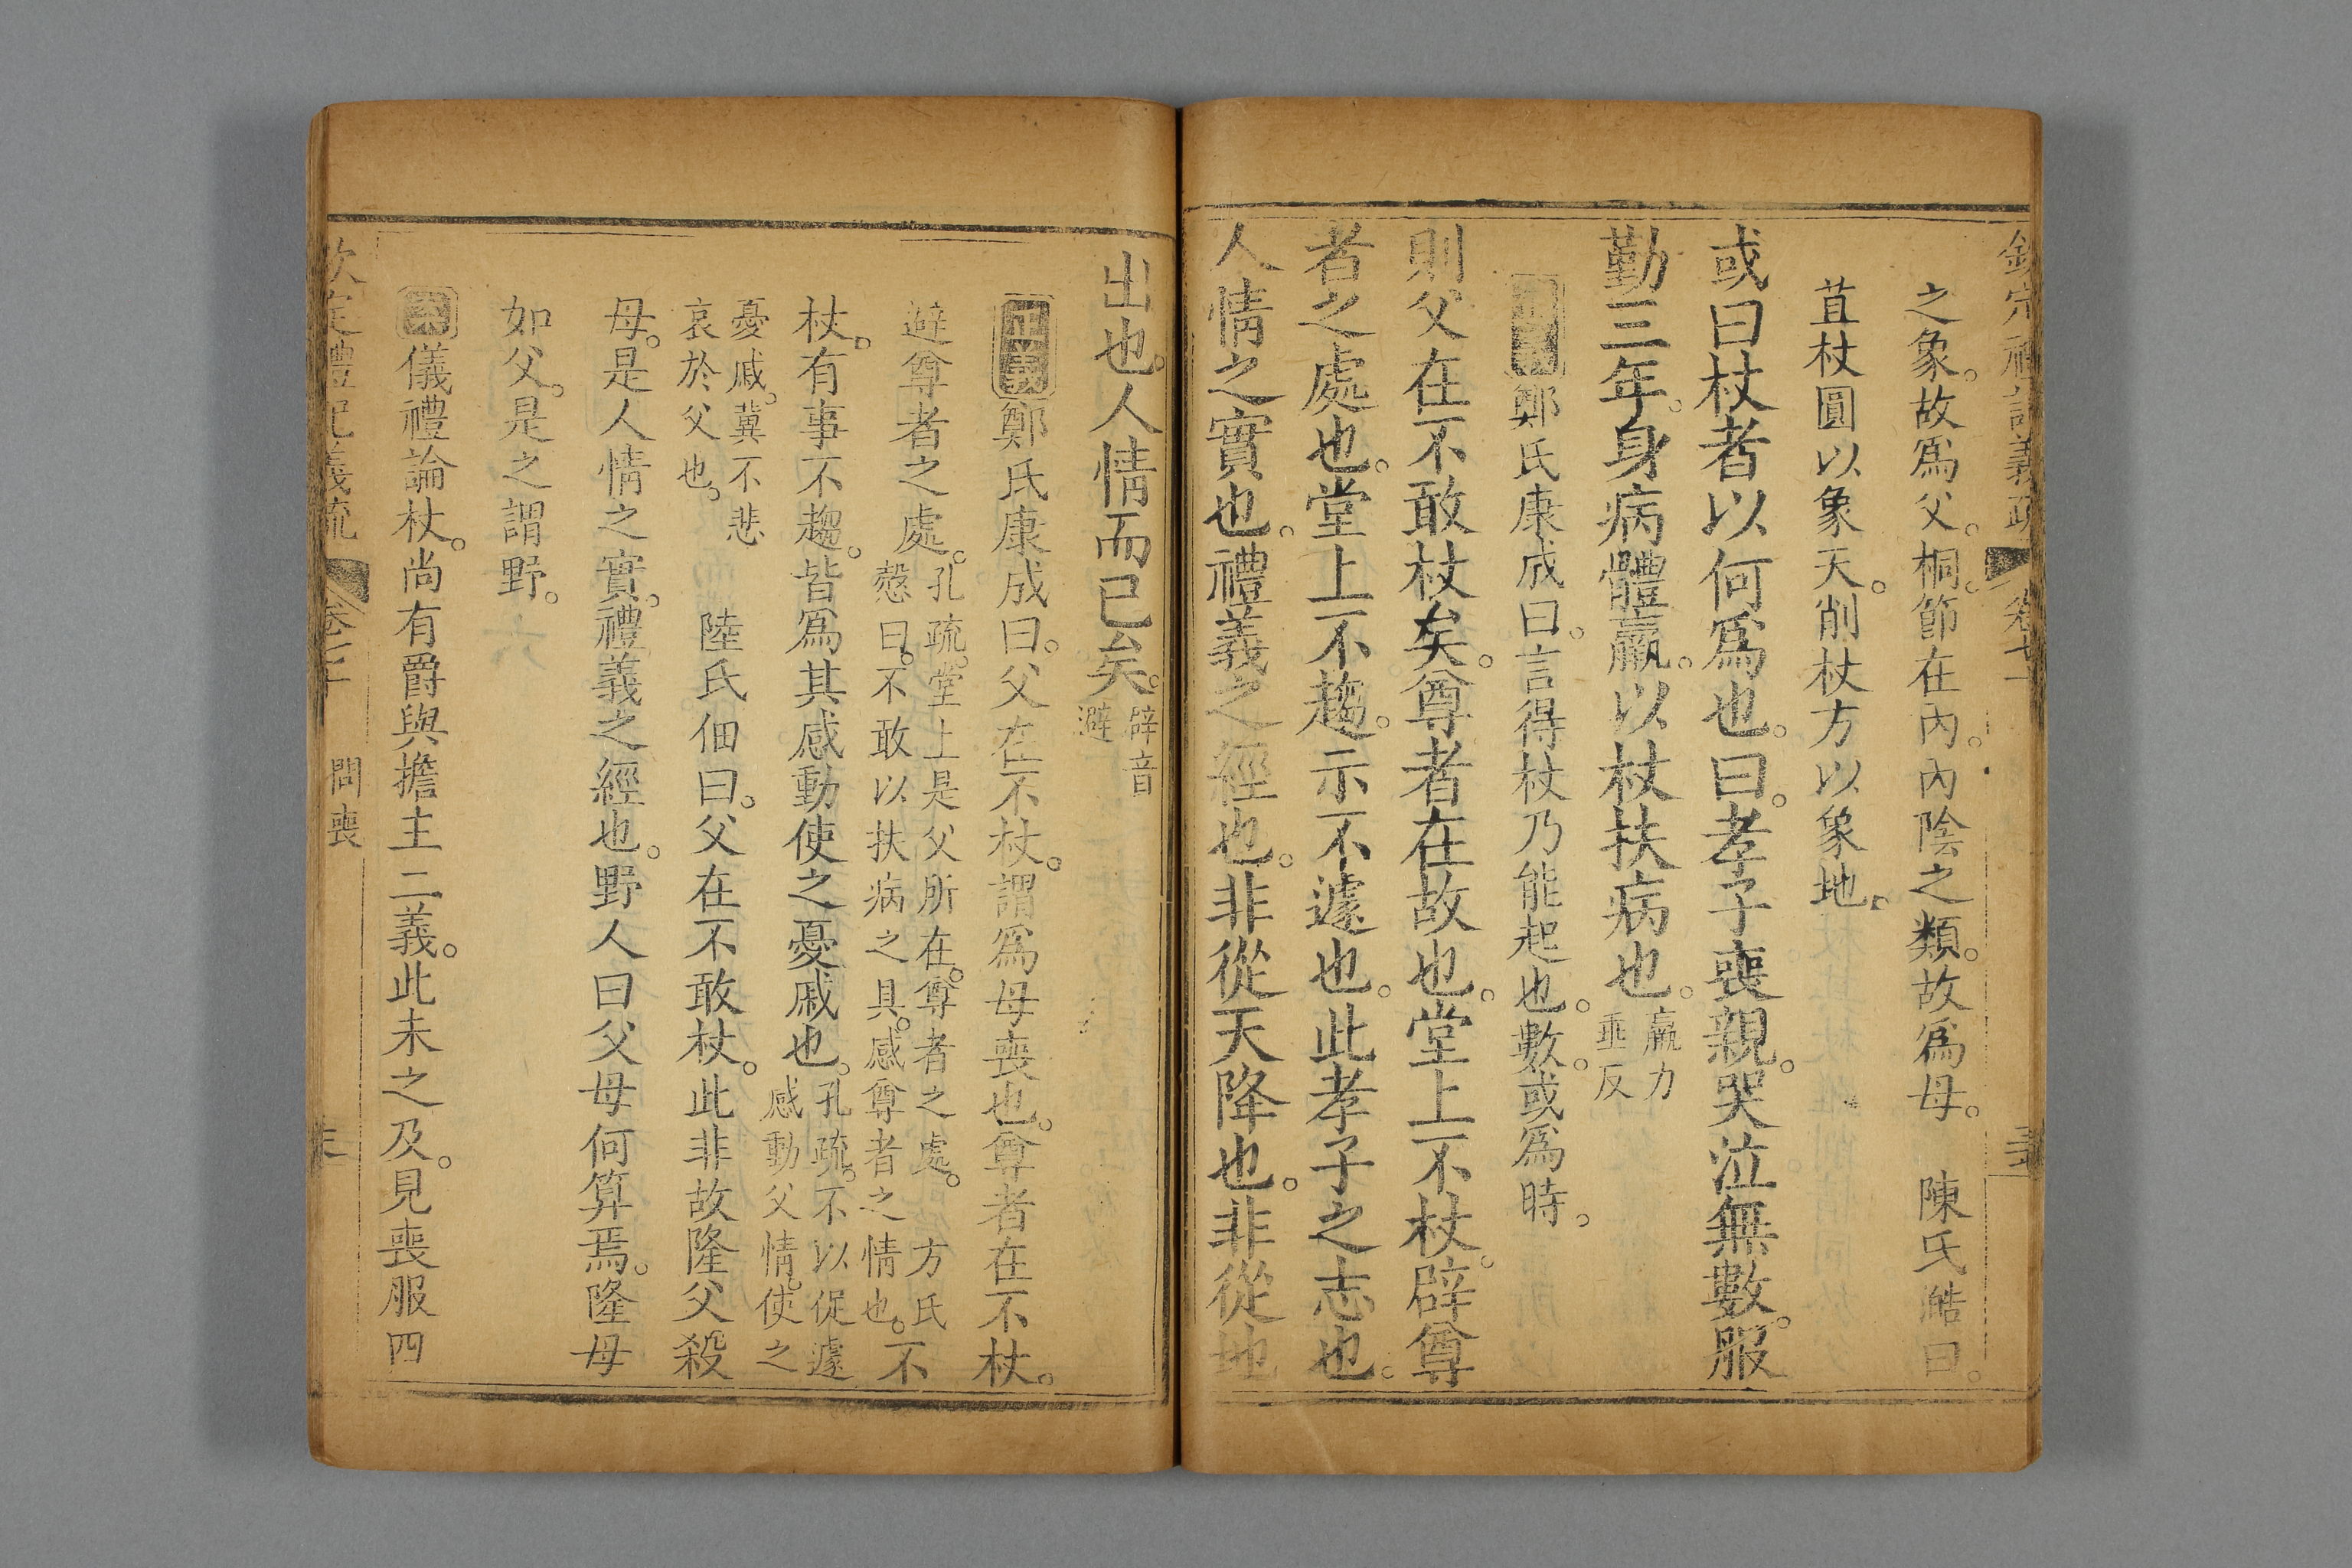 之象。故爲父。桐。節在內。內陰之類。故爲母。陳氏皓曰。
苴杖圓以象天。削杖方以象地。
或曰杖者以何爲也。曰。孝子喪親。哭泣無數。服
勤三年。身病體羸。以杖扶病也。羸力
垂反
鄭氏康成曰。言得杖乃能起也。數。或爲時。
則父在不敢杖矣。尊者在故也。堂上不杖。辟尊
者之處也。堂上不趨。示不遽也。此孝子之志也。
人情之實也。禮義之經也。非從天降也。非從地
出也。人情而已矣。辟音
避
正義鄭氏康成曰。父在不杖。謂爲母喪也。尊者在不杖。
避尊者之處。孔疏。堂上是父所在。尊者之處。方氏
慤曰。不敢以扶病之具。感尊者之情也。不
杖。有事不趨。皆爲其感動使之憂戚也。孔疏。不以促遽
感動父情。使之
憂戚。冀不悲
哀於父也。陸氏佃曰。父在不敢杖。此非故隆父殺
母。是人情之實。禮義之經也。野人曰父母何算焉。隆母
如父。是之謂野。
案儀禮論杖。尚有爵與擔主二義。此未之及。見喪服四
欽定禮記義疏
問喪